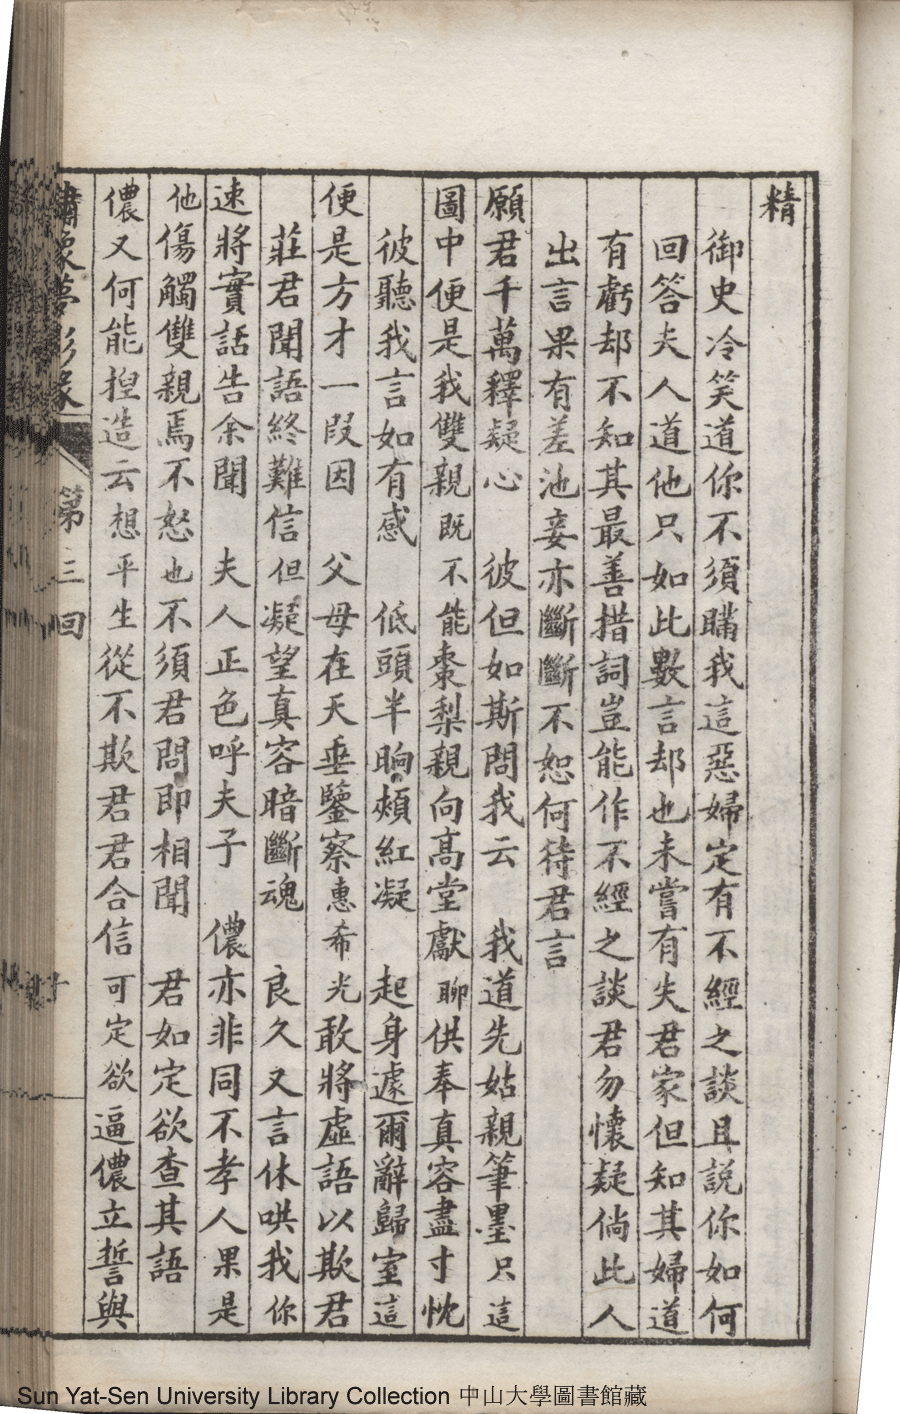 精
御史冷笑道你不須瞞我這惡婦定有不經之談且説你如何
回答夫人道他只如此數言却也未嘗有失君家但知其婦道
有虧却不知其最善措詞豈能作不經之談君勿懷疑倘此人
出言果有差池妾亦斷斷不恕何待君言
願君千萬釋疑心　彼但如斯問我云　我道先姑親筆墨只這
圖中便是我雙親既不能棗梨親向高堂獻聊供奉真容盡寸忱
彼聽我言如有感　低頭半晌頰紅凝　起身遽爾辭歸室這
便是方才一段因　父母在天垂鑒察惠希光敢將虛語以欺君
莊君聞語終難信但凝望真容暗斷魂　良久又言休哄我你
速將實話告余聞　夫人正色呼夫子　儂亦非同不孝人果是
他傷觸雙親焉不怒也不須君問即相聞　君如定欲查其語
儂又何能揑造云想平生從不欺君君合信可定欲逼儂立誓與
繡像夢影緣　第三回
Sun Yat-Sen University Library Collection 中山大學圖書館藏